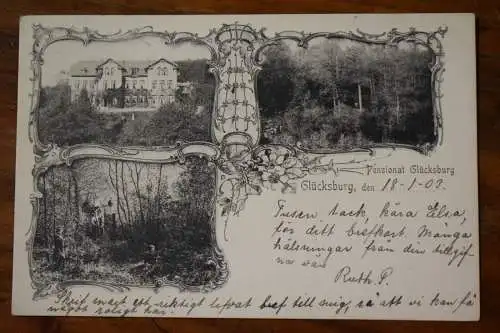 Pensionat Glücksburg
Glücksburg, den 18-1-02.
Tusen tack, kära Elsa,
för ditt brefkort. Många
hälsningar från din tillgif-
na vän
Ruth P.
Skrif snart ett riktigt bref till mig, så att vi kan få
något roligt här.